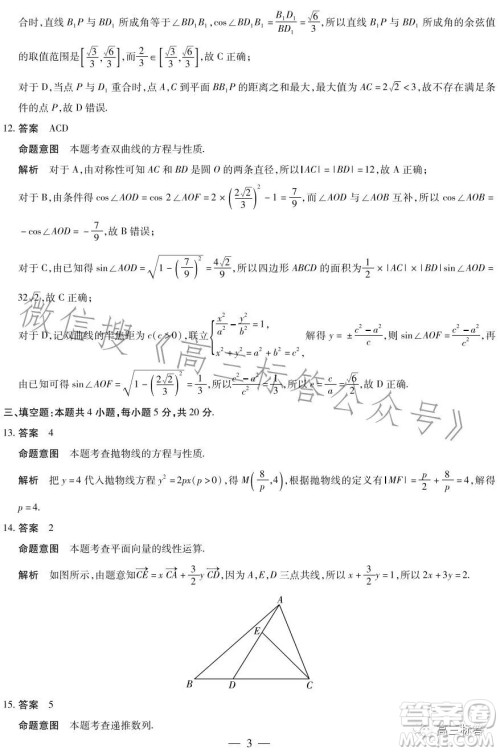 合时,直线 B₁P 与 BD₁ 所成角等于∠BD₁B₁,cos∠BD₁B₁ = B₁D₁/BD₁ = √6/3,所以直线 B₁P 与 BD₁ 所成角的余弦值
的取值范围是[√3/3, √6/3],而 2/3 ∈ [√3/3, √6/3],故 C 正确;
对于 D,当点 P 与 D₁ 重合时,点 A,C 到平面 BB₁P 的距离之和最大,最大值为 AC = 2√2 < 3,故不存在满足条
件的点 P,故 D 错误.
12. 答案 ACD
命题意图 本题考查双曲线的方程与性质.
解析 对于 A,由对称性可知 AC 和 BD 是圆 O 的两条直径,所以|AC| = |BD| = 12,故 A 正确;
对于 B,由条件得 cos∠AOD = cos 2∠AOF = 2×(2√2/3)² − 1 = 7/9,而∠AOB 与∠AOD 互补,所以 cos∠AOB =
−cos∠AOD = −7/9,故 B 错误;
对于 C,由已知得 sin∠AOD = √(1 − (7/9)²) = 4√2/9,所以四边形 ABCD 的面积为 1/2 × |AC| × |BD| × sin∠AOD =
32√2,故 C 正确;
对于 D,记双曲线的半焦距为 c(c > 0),联立{x²/a² − y²/b² = 1, x² + y² = c², 解得 y = ± (c² − a²)/c,则 sin∠AOF = (c² − a²)/c²,再
由已知可得 = √(1 − (2√2/3)²) = 1/3,所以 (c² − a²)/c² = 1/3,解得 e = c/a = √6/2,故 D 正确.
三、填空题:本题共 4 小题,每小题 5 分,共 20 分.
13. 答案 4
命题意图 本题考查抛物线的方程与性质.
解析 把 y = 4 代入抛物线方程 y² = 2px(p > 0),得 M(8/p, 4),根据抛物线的定义有|MF| = p/2 + 8/p = 4,解得
p = 4.
14. 答案 2
命题意图 本题考查平面向量的线性运算.
解析 如图所示,由题意知 CE = x CA + 3/2 y CD,因为 A,E,D 三点共线,所以 x + 3/2 y = 1,所以 2x + 3y = 2.
A
E
B D C
15. 答案 5
命题意图 本题考查递推数列.
— 3 —
微信搜《高三标答公众号》
高三标答